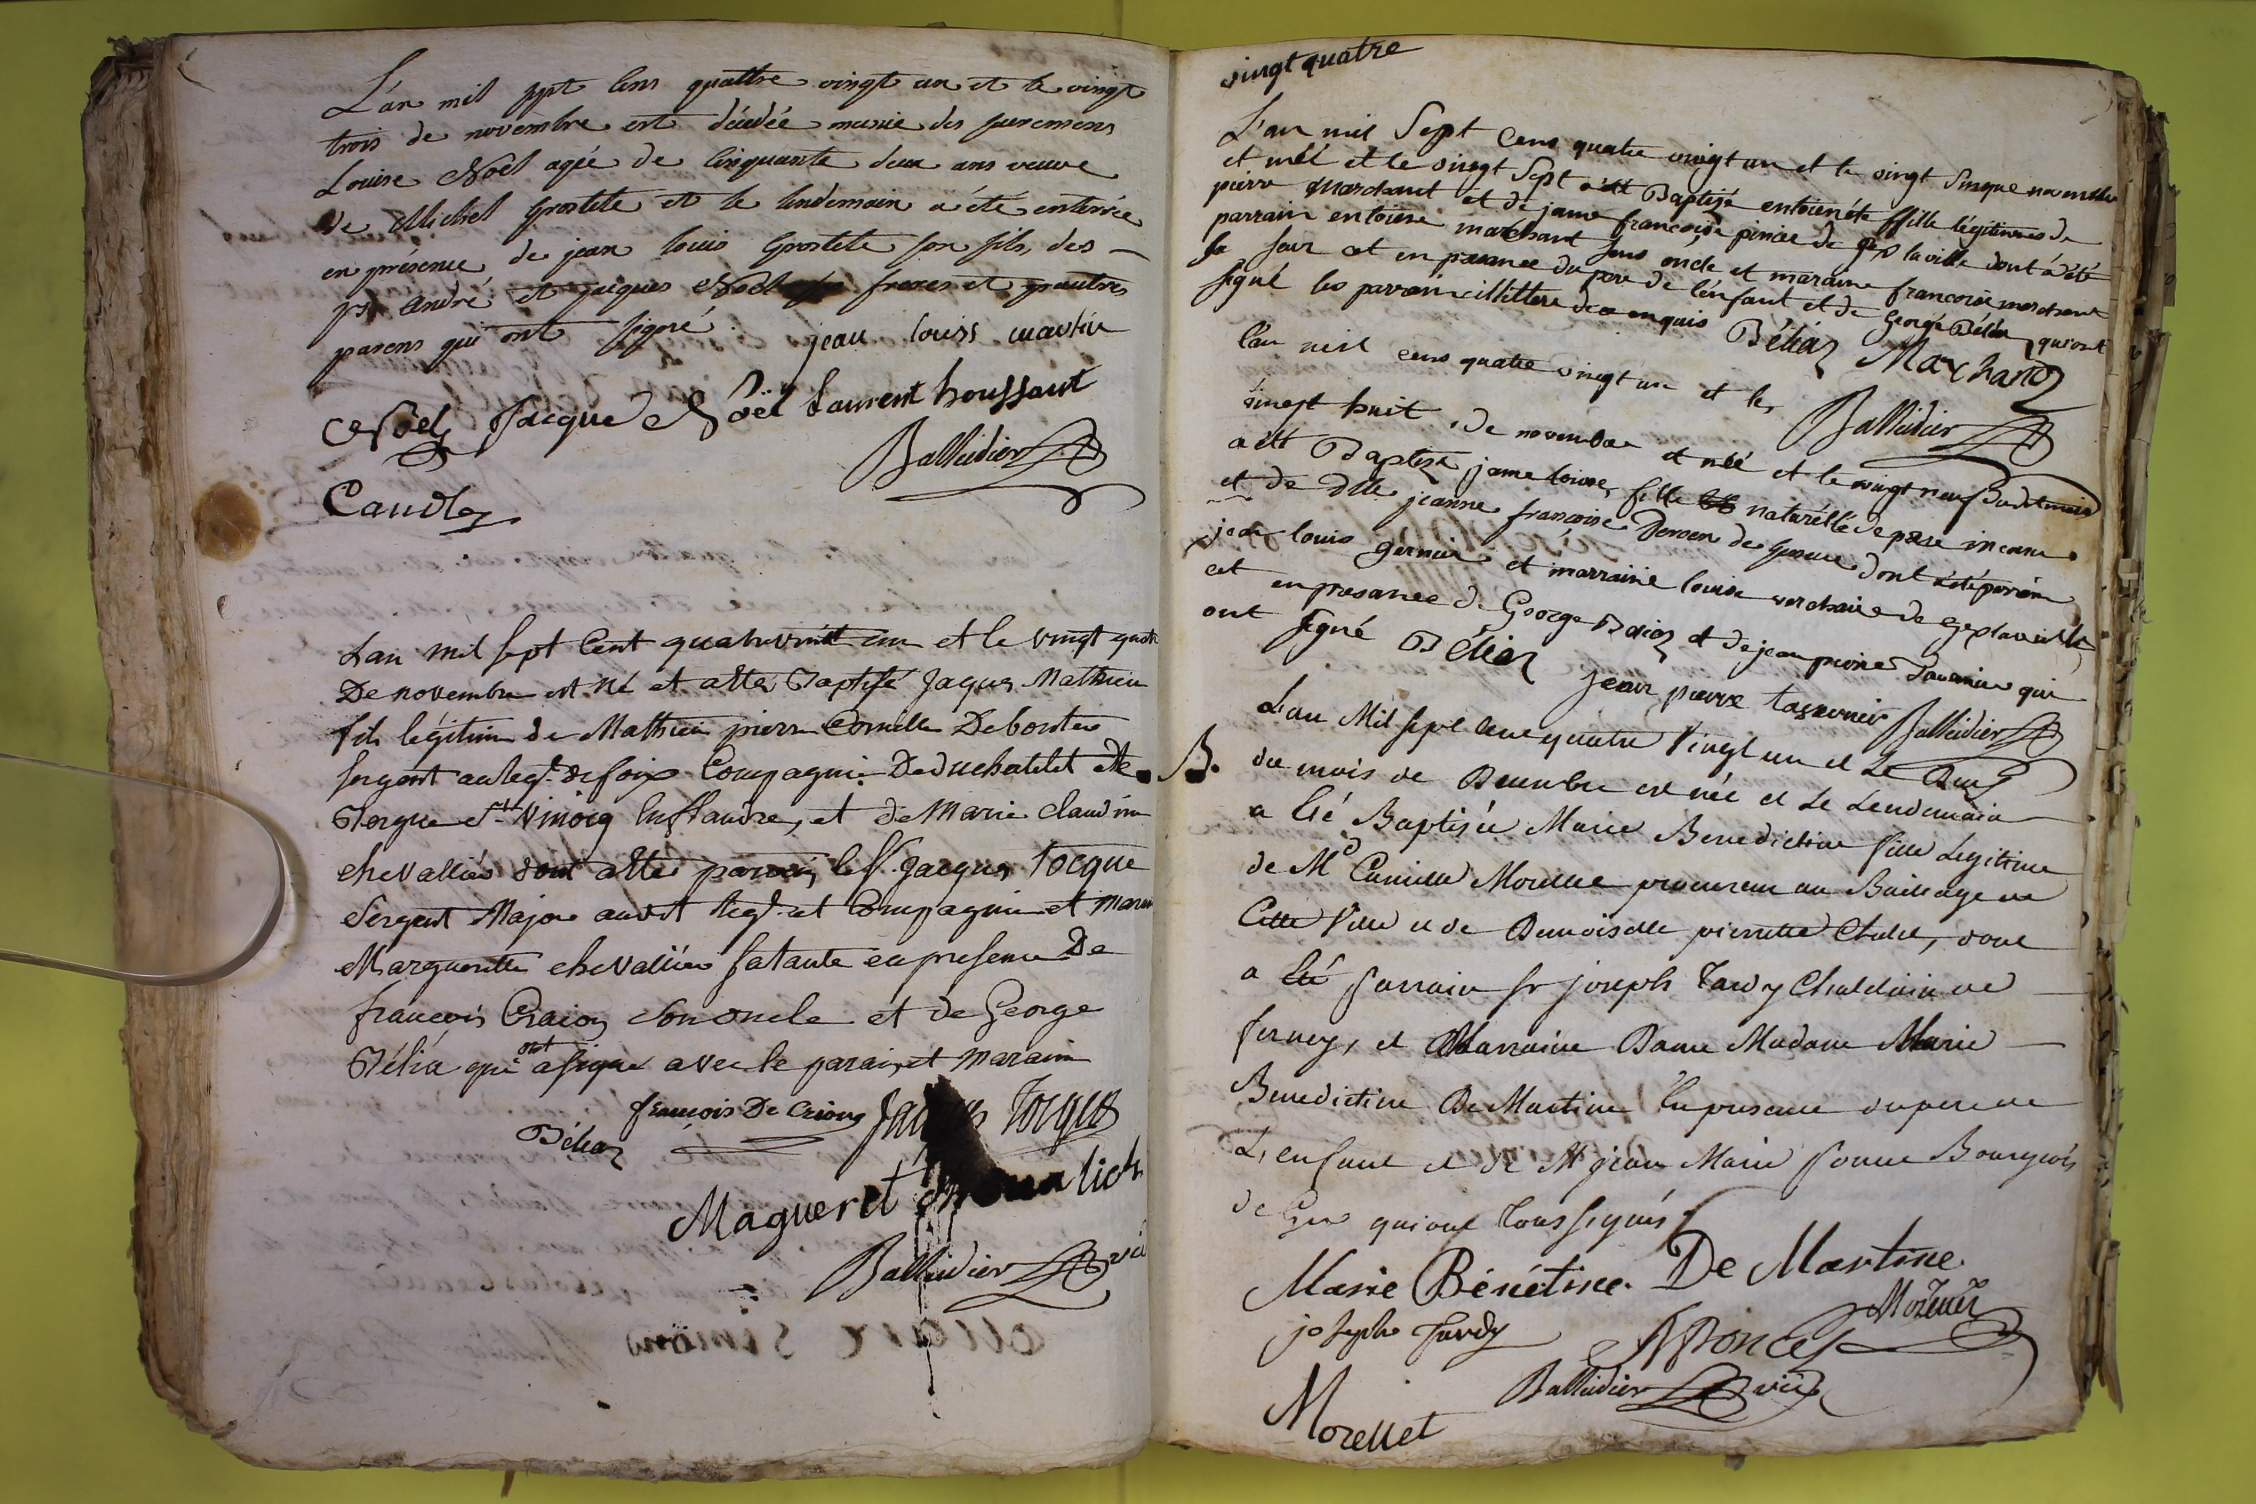 L'an mil sept cens quattre vingt un et le vingt
trois de novembre est décédée munie des sacremens
Louise Noël agée de cinquante deux ans veuve
de Michel Grostete et le lendemain a été enterrée
en présence de jean louis Grostete son fils, des
andré et jacques Noël freres et d'autres
parens qui ont signé. jean louiss martin
Noël Jacque Noël Laurent houssant
Balleidier
Caudle
Lan mil sept Cent quatrevint un et le vingt quatr
De novembre est né et atté Baptisé Jaques Mathieu
fils légitime de Mathieu pierre Cornille Debouter
sergent au Regt. de foix Compagnie Deduchatelet de
Bergue St Vinocq en flandre, et de Marie claudine
chevallier dont atté parain le Sr. Jacques Tocque
Sergent Major audit Regt. et Compagnie et marai
Margueritte chevallier sa tante en presence De
françois Craion son oncle et de George
Bélia qui ont asigné avec le parain et maraine
françois De Crions Jacques Tocque
Béliaz
Magueret
Balleidier vic
vingt quatre
L'an mil Sept Cens quatre vingt un et le vingt Sinque novembre
et néé et le vingt Sept a été Baptisé entoienéte ffille légitimes de
pierre Marchant et de jane françoise pinier de gex la ville dont à été
parrain entoiene marchant sons oncle et maraine françoise marchant
sa seur et en presance du pere de l'enfant et de George Béliaz qui ont
signé les parrain illittere de ce enquis Béliaz Marchand
l'an mil cens quatre vingt un et les Balleidier
vingt huit de novembre et néé et le vingt neuf dudit mois
a été Baptisé jane loise, fille naturélle de pere inconu
et de Dlle jeanne françoise de Geneve dont a été parain
jean louis gernier et marraine louise verchaire de gex la ville
et en presance de George Béliaz et de jean pierre Tavernier qui
ont signé Béliaz jean pierre tavernier Balleidier
B. L'an Mil sept cent quatre Vingt un et Le Cinq
du mois de Decembre est née et Le Lendemain
a été Baptisée Marie Benedictine fille Legitime
de Me Camille Morellet procureur au Bailliage de
Cette Ville et de Demoiselle pierrette Chalet, dont
a été Parrain sr joseph Tardy Chatelain de
ferney, et Marraine Dame Madame Marie
Benedictine De Martine En presence du pere de
L'enfant et de Mr jean Marie Ponce Bourgeois
de Gex qui ont tous signés
Marie Bénétine. De Martine
joseph Tardy Poncet Morellet
Balleidier vic
Morellet